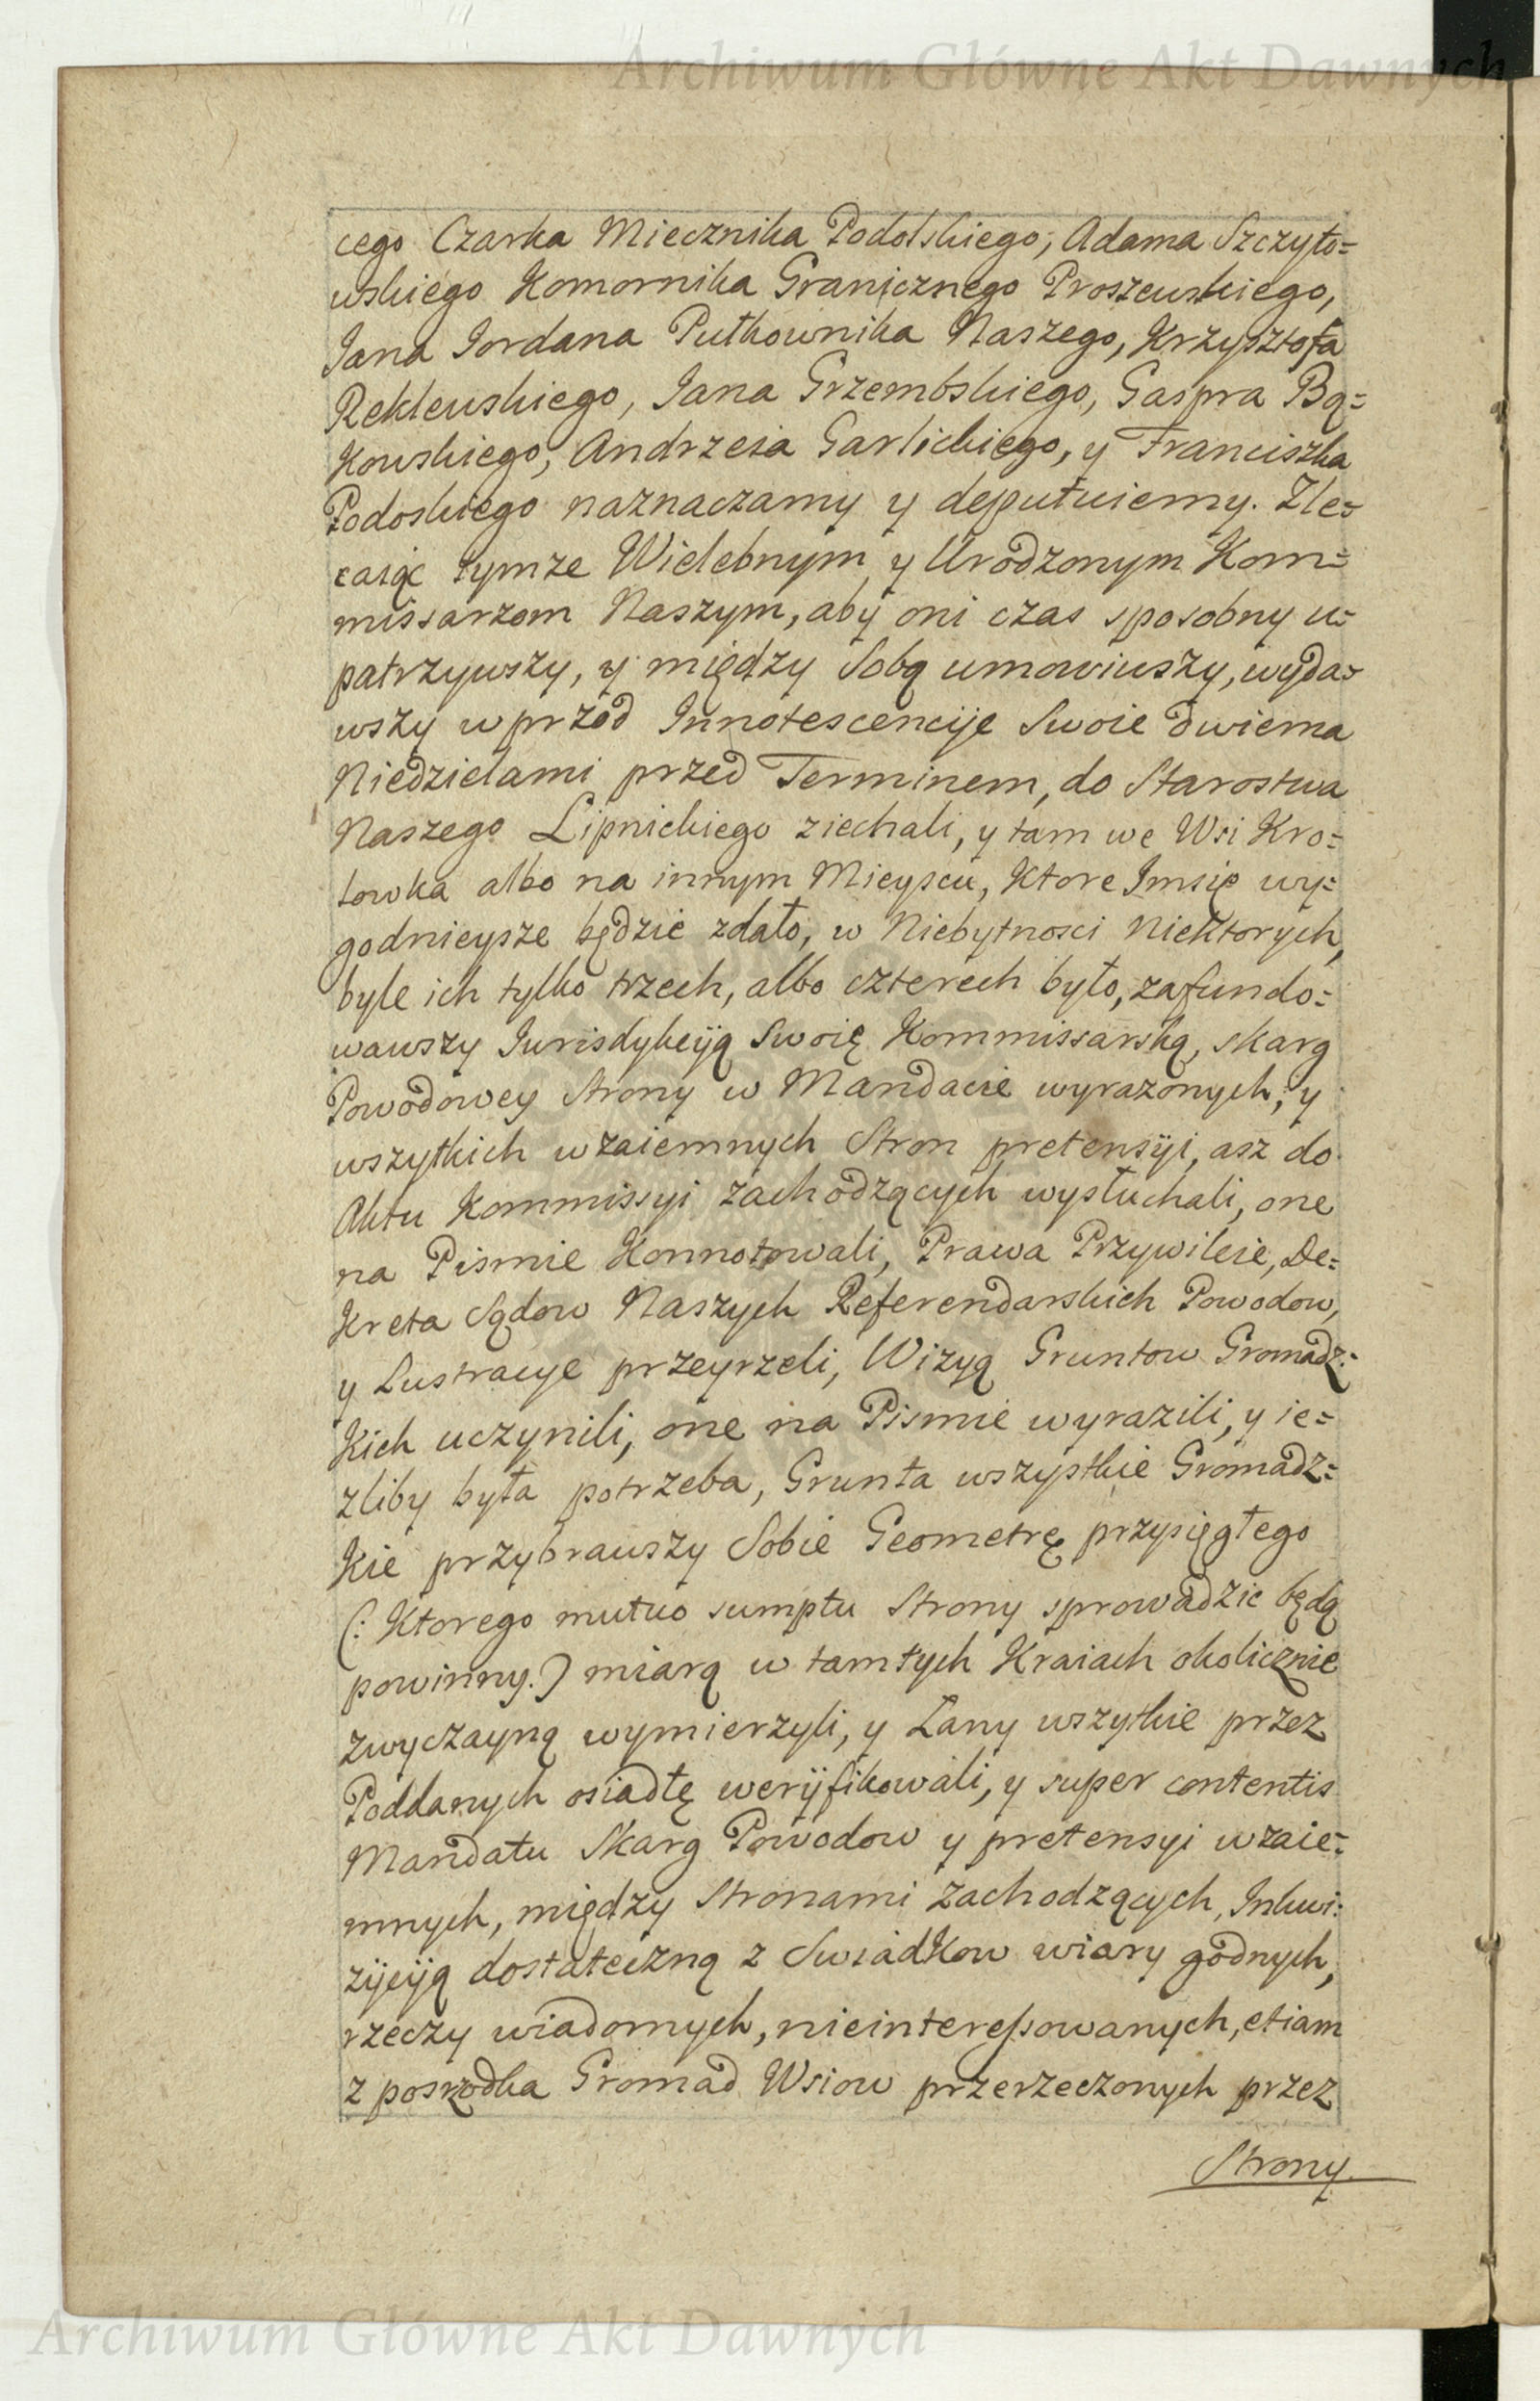 Archiwum Główne Akt Dawnych
cego Czarka Miecznika Podolskiego, Adama Szczyto=
wskiego Komornika Granicznego Proszewskiego,
Iana Iordana Pułkownika Naszego, Krzysztofa
Reklewskiego, Iana Grzembskiego, Gaspra Bą=
kowskiego, Andrzeia Garlickiego, y Franciszka
Podoskiego naznaczamy y deputuiemy. Zle=
caiąc tymze Wielebnym y Urodzonym Kom=
missarzom Naszym, aby oni czas sposobny u=
patrzywszy, y między Sobą umowiwszy, wyda=
wszy wprzod Innotescencije Swoie dwiema
Niedzielami przed Terminem, do Starostwa
Naszego Lipnickiego ziechali, y tam we Wsi Kro=
lowka albo na innym Mieyscu, Ktore Imsię wy=
godnieysze będzie zdało, w Niebytnosci Niektorych,
byle ich tylko trzech, albo czterech było, zafundo=
wawszy Iurisdykcyą Swoię Kommissarską, skarg
Powodowey Strony w Mandacie wyrazonych, y
wszytkich wzaiemnych Stron pretensyi, asz do
Aktu Kommissyi zachodzących wysłuchali, one
na Pismie Konnotowali, Prawa Przywileie, De=
kreta Sądow Naszych Referendarskich Powodow,
y Lustracye przeyrzeli, Wizyą Gruntow Gromadz=
kich uczynili, one na Pismie wyrazili, y ie=
zliby była potrzeba, Grunta wszystkie Gromadz=
kie przybrawszy Sobie Geometrę przysięgłego
(: Ktorego mutuo sumptu Strony sprowadzic będą
powinny.) miarą w tamtych Kraiach okolicznie
zwyczayną wymierzyli, y Łany wszytkie przez
Poddanych osiadłę weryfikowali, y super contentis
Mandatu Skarg Powodow y pretensyi wzaie=
mnych, między Stronami zachodzących, Inkwi=
zycyą dostateczną z Swiadkow wiary godnych,
rzeczy wiadomych, nieinteressowanych, etiam
z poszrodka Gromad Wsiow przerzeczonych przez
Strony
Archiwum Główne Akt Dawnych